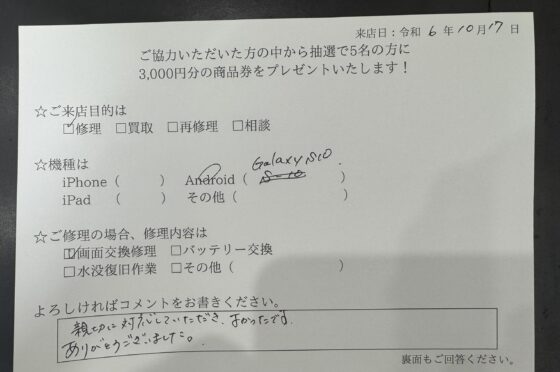 来店日：令和 6 年 10 月 17 日
ご協力いただいた方の中から抽選で5名の方に
3,000円分の商品券をプレゼントいたします！
☆ご来店目的は
☑修理 □買取 □再修理 □相談
☆機種は
Galaxy S10
iPhone（ ） Android（ S-10 ）
iPad （ ） その他（ ）
☆ご修理の場合、修理内容は
☑画面交換修理 □バッテリー交換
□水没復旧作業 □その他（ ）
よろしければコメントをお書きください。
親切に対応していただき、よかったです。
ありがとうございました。
裏面もご回答ください。